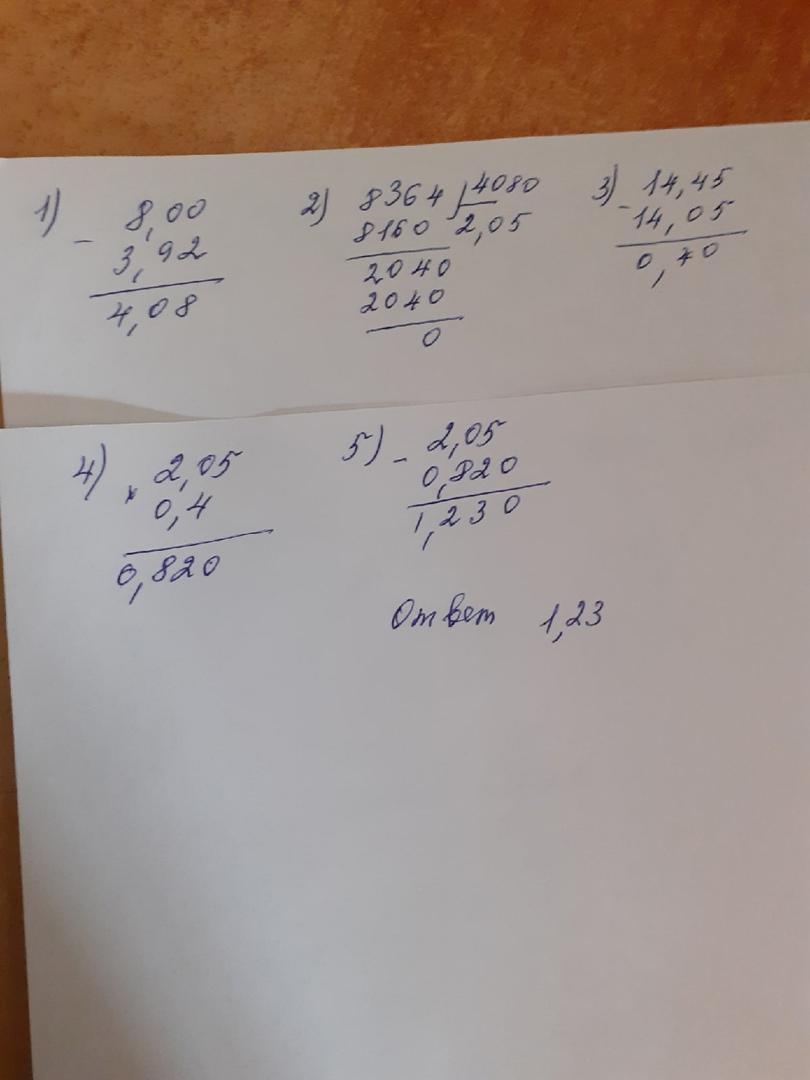 1) - 8,00
3,92
4,08
2) 8364 | 4080
8160 2,05
2040
2040
0
3) - 14,45
14,05
0,40
4) × 2,05
0,4
0,820
5) - 2,05
0,820
1,230
Ответ 1,23